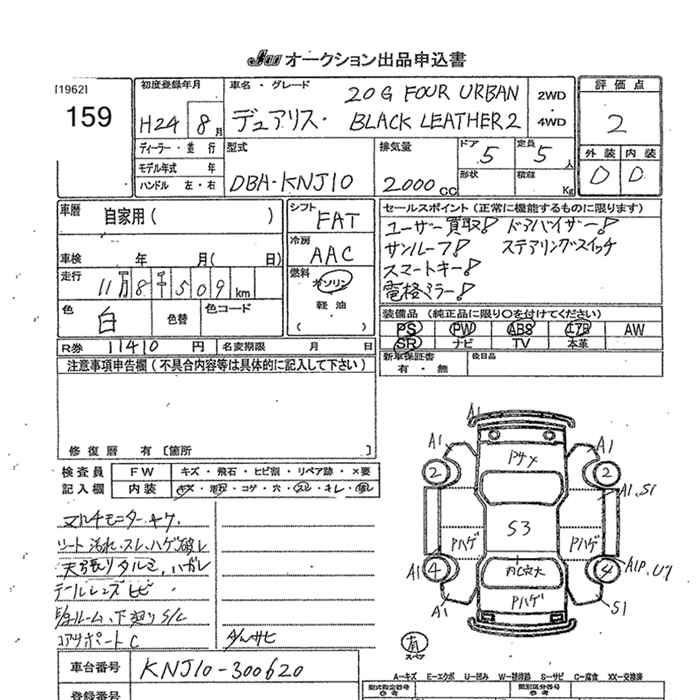 JU オークション出品申込書
[1962]
159
初度登録年月
H24 8月
車名・グレード
デュアリス・ 20G FOUR URBAN BLACK LEATHER2
2WD
4WD
評価点
2
外装 内装
D D
ディーラー・並行
モデル年式 年
ハンドル 左・右
型式
DBA-KNJ10
排気量
2000 CC
ドア 5
定員 5人
形状
積載 Kg
車歴 自家用( )
車検 年 月( 日)
走行 11万8千509km
色 白 色替 色コード
シフト FAT
冷房 AAC
燃料 ガソリン
軽油
( )
セールスポイント(正常に機能するものに限ります)
ユーザー買取! ドアバイザー!
サンルーフ! ステアリングスイッチ
スマートキー!
電格ミラー!
装備品(純正品に限り○を付けてください)
PS PW ABS エアB AW
SR ナビ TV 本革
新車保証書 有・無
後日品
R券 11410 円 名変期限 月 日
注意事項申告欄(不具合内容等は具体的に記入して下さい)
修復暦 有 [箇所 ]
検査員記入欄
FW キズ・飛石・ヒビ割・リペア跡・×要
内装 キズ・汚れ・コゲ・穴・スレ・キレ・破レ
マルチモニターヤケ
シート汚れ、スレ、ハゲ破レ
天張りタルミ、ハガレ
テールレンズヒビ
下廻りS/C
コアサポートC
サビ
車台番号 KNJ10-300620
登録番号
A1
A1
A1
2
2
A1.S1
S3
Pハゲ
Pハゲ
A1
4
4
A1P.U7
Pハゲ
A1
S1
有
スペア
A―キズ E―エクボ U―凹み W―補修跡 S―サビ C―腐食 XX―交換済
型式指定番号
類別区分番号